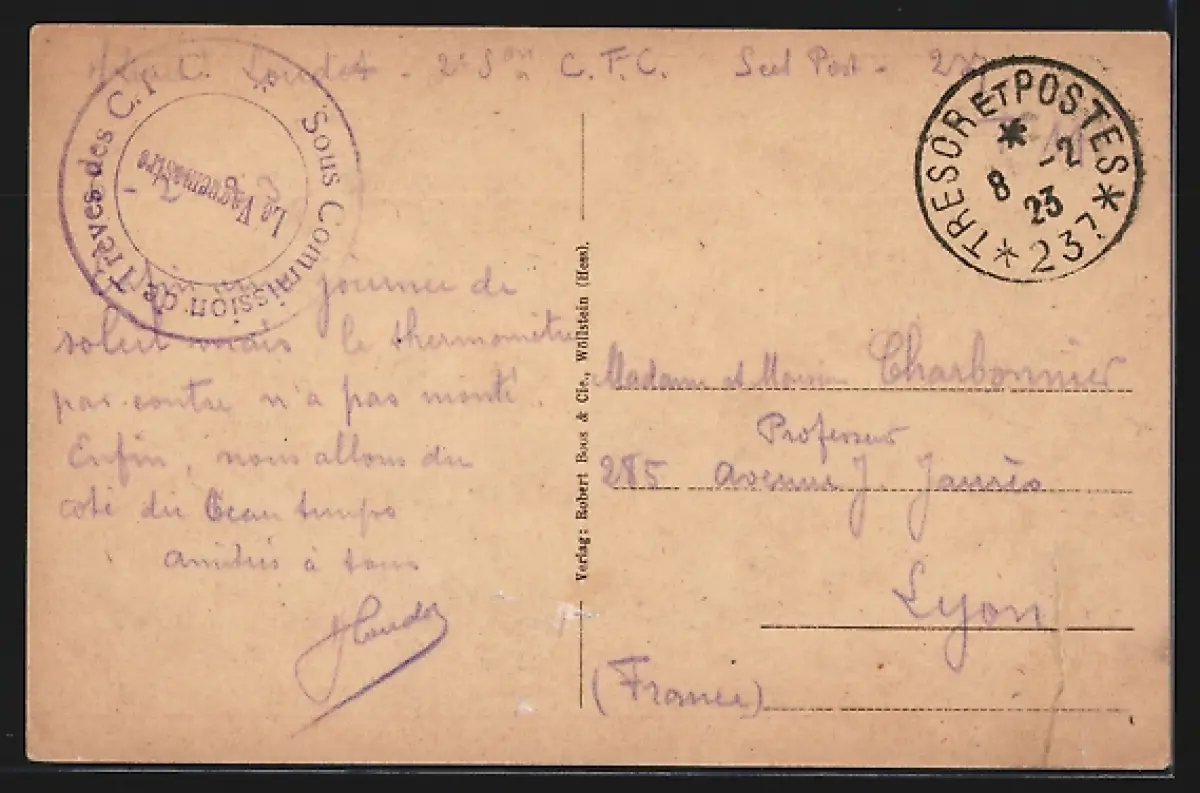 C. T. C. Sect Post - 237
Sous Commission de Trèves des C.
Le Vaguemestre
TRESOR ET POSTES
8 -2
23
* 237 *
journée de
soleil mais le thermomètre
par contre n'a pas monté.
Enfin, nous allons du
coté du beau temps
amitiés à tous
Verlag: Robert Boos & Cie., Wöllstein (Hess).
Madame et Monsieur Charbonnier
Professeur
285 avenue J. Jaurès
Lyon
(France)